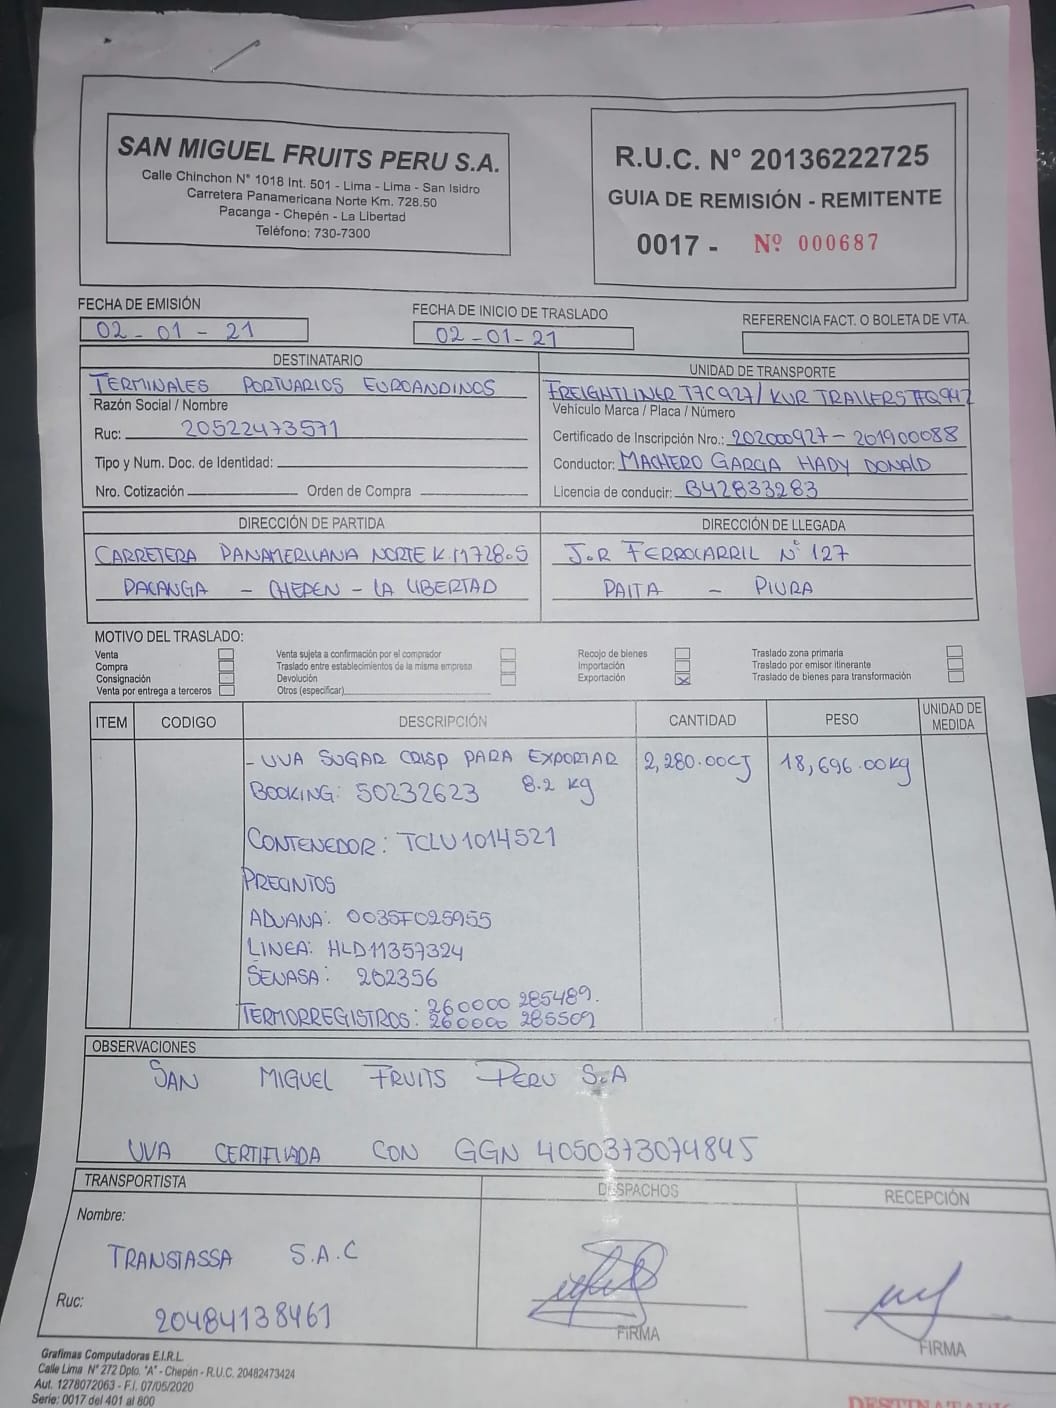 SAN MIGUEL FRUITS PERU S.A.
Calle Chinchon N° 1018 Int. 501 - Lima - Lima - San Isidro
Carretera Panamericana Norte Km. 728.50
Pacanga - Chepén - La Libertad
Teléfono: 730-7300
R.U.C. N° 20136222725
GUIA DE REMISIÓN - REMITENTE
0017 - Nº 000687
FECHA DE EMISIÓN
02 - 01 - 21
FECHA DE INICIO DE TRASLADO
02 - 01 - 21
REFERENCIA FACT. O BOLETA DE VTA.
DESTINATARIO
TERMINALES PORTUARIOS EUROANDINOS
Razón Social / Nombre
Ruc: 20522473571
Tipo y Num. Doc. de Identidad:
Nro. Cotización Orden de Compra
UNIDAD DE TRANSPORTE
FREIGHTLINER T7C927/ KUR TRAILERS
Vehículo Marca / Placa / Número
Certificado de Inscripción Nro.: 202000927 - 201900088
Conductor: MACHERO GARCIA HADY DONALD
Licencia de conducir: B42833283
DIRECCIÓN DE PARTIDA
CARRETERA PANAMERICANA NORTE KM728.5
PACANGA - CHEPEN - LA LIBERTAD
DIRECCIÓN DE LLEGADA
J.R FERROCARRIL N° 127
PAITA - PIURA
MOTIVO DEL TRASLADO:
Venta
Compra
Consignación
Venta por entrega a terceros
Venta sujeta a confirmación por el comprador
Traslado entre establecimientos de la misma empresa
Devolución
Otros (especificar)
Recojo de bienes
Importación
Exportación X
Traslado zona primaria
Traslado por emisor itinerante
Traslado de bienes para transformación
ITEM CODIGO DESCRIPCIÓN CANTIDAD PESO UNIDAD DE MEDIDA
- UVA SUGAR CRISP PARA EXPORTAR 2,280.00CJ 18,696.00kg
BOOKING: 50232623 8.2 kg
CONTENEDOR: TCLU1014521
PRECINTOS
ADUANA: 0035F025955
LINEA: HLD11357324
SENASA: 202356
TERMORREGISTROS: 260000 285489.
260000 285509
OBSERVACIONES
SAN MIGUEL FRUITS PERU S.A
UVA CERTIFICADA CON GGN 4050373074845
TRANSPORTISTA
Nombre:
TRANSTASSA S.A.C
Ruc:
20484138461
DESPACHOS
FIRMA
RECEPCIÓN
FIRMA
Grafimas Computadoras E.I.R.L.
Calle Lima N° 272 Dpto. "A" - Chepén - R.U.C. 20482473424
Aut. 1278072063 - F.I. 07/05/2020
Serie: 0017 del 401 al 800